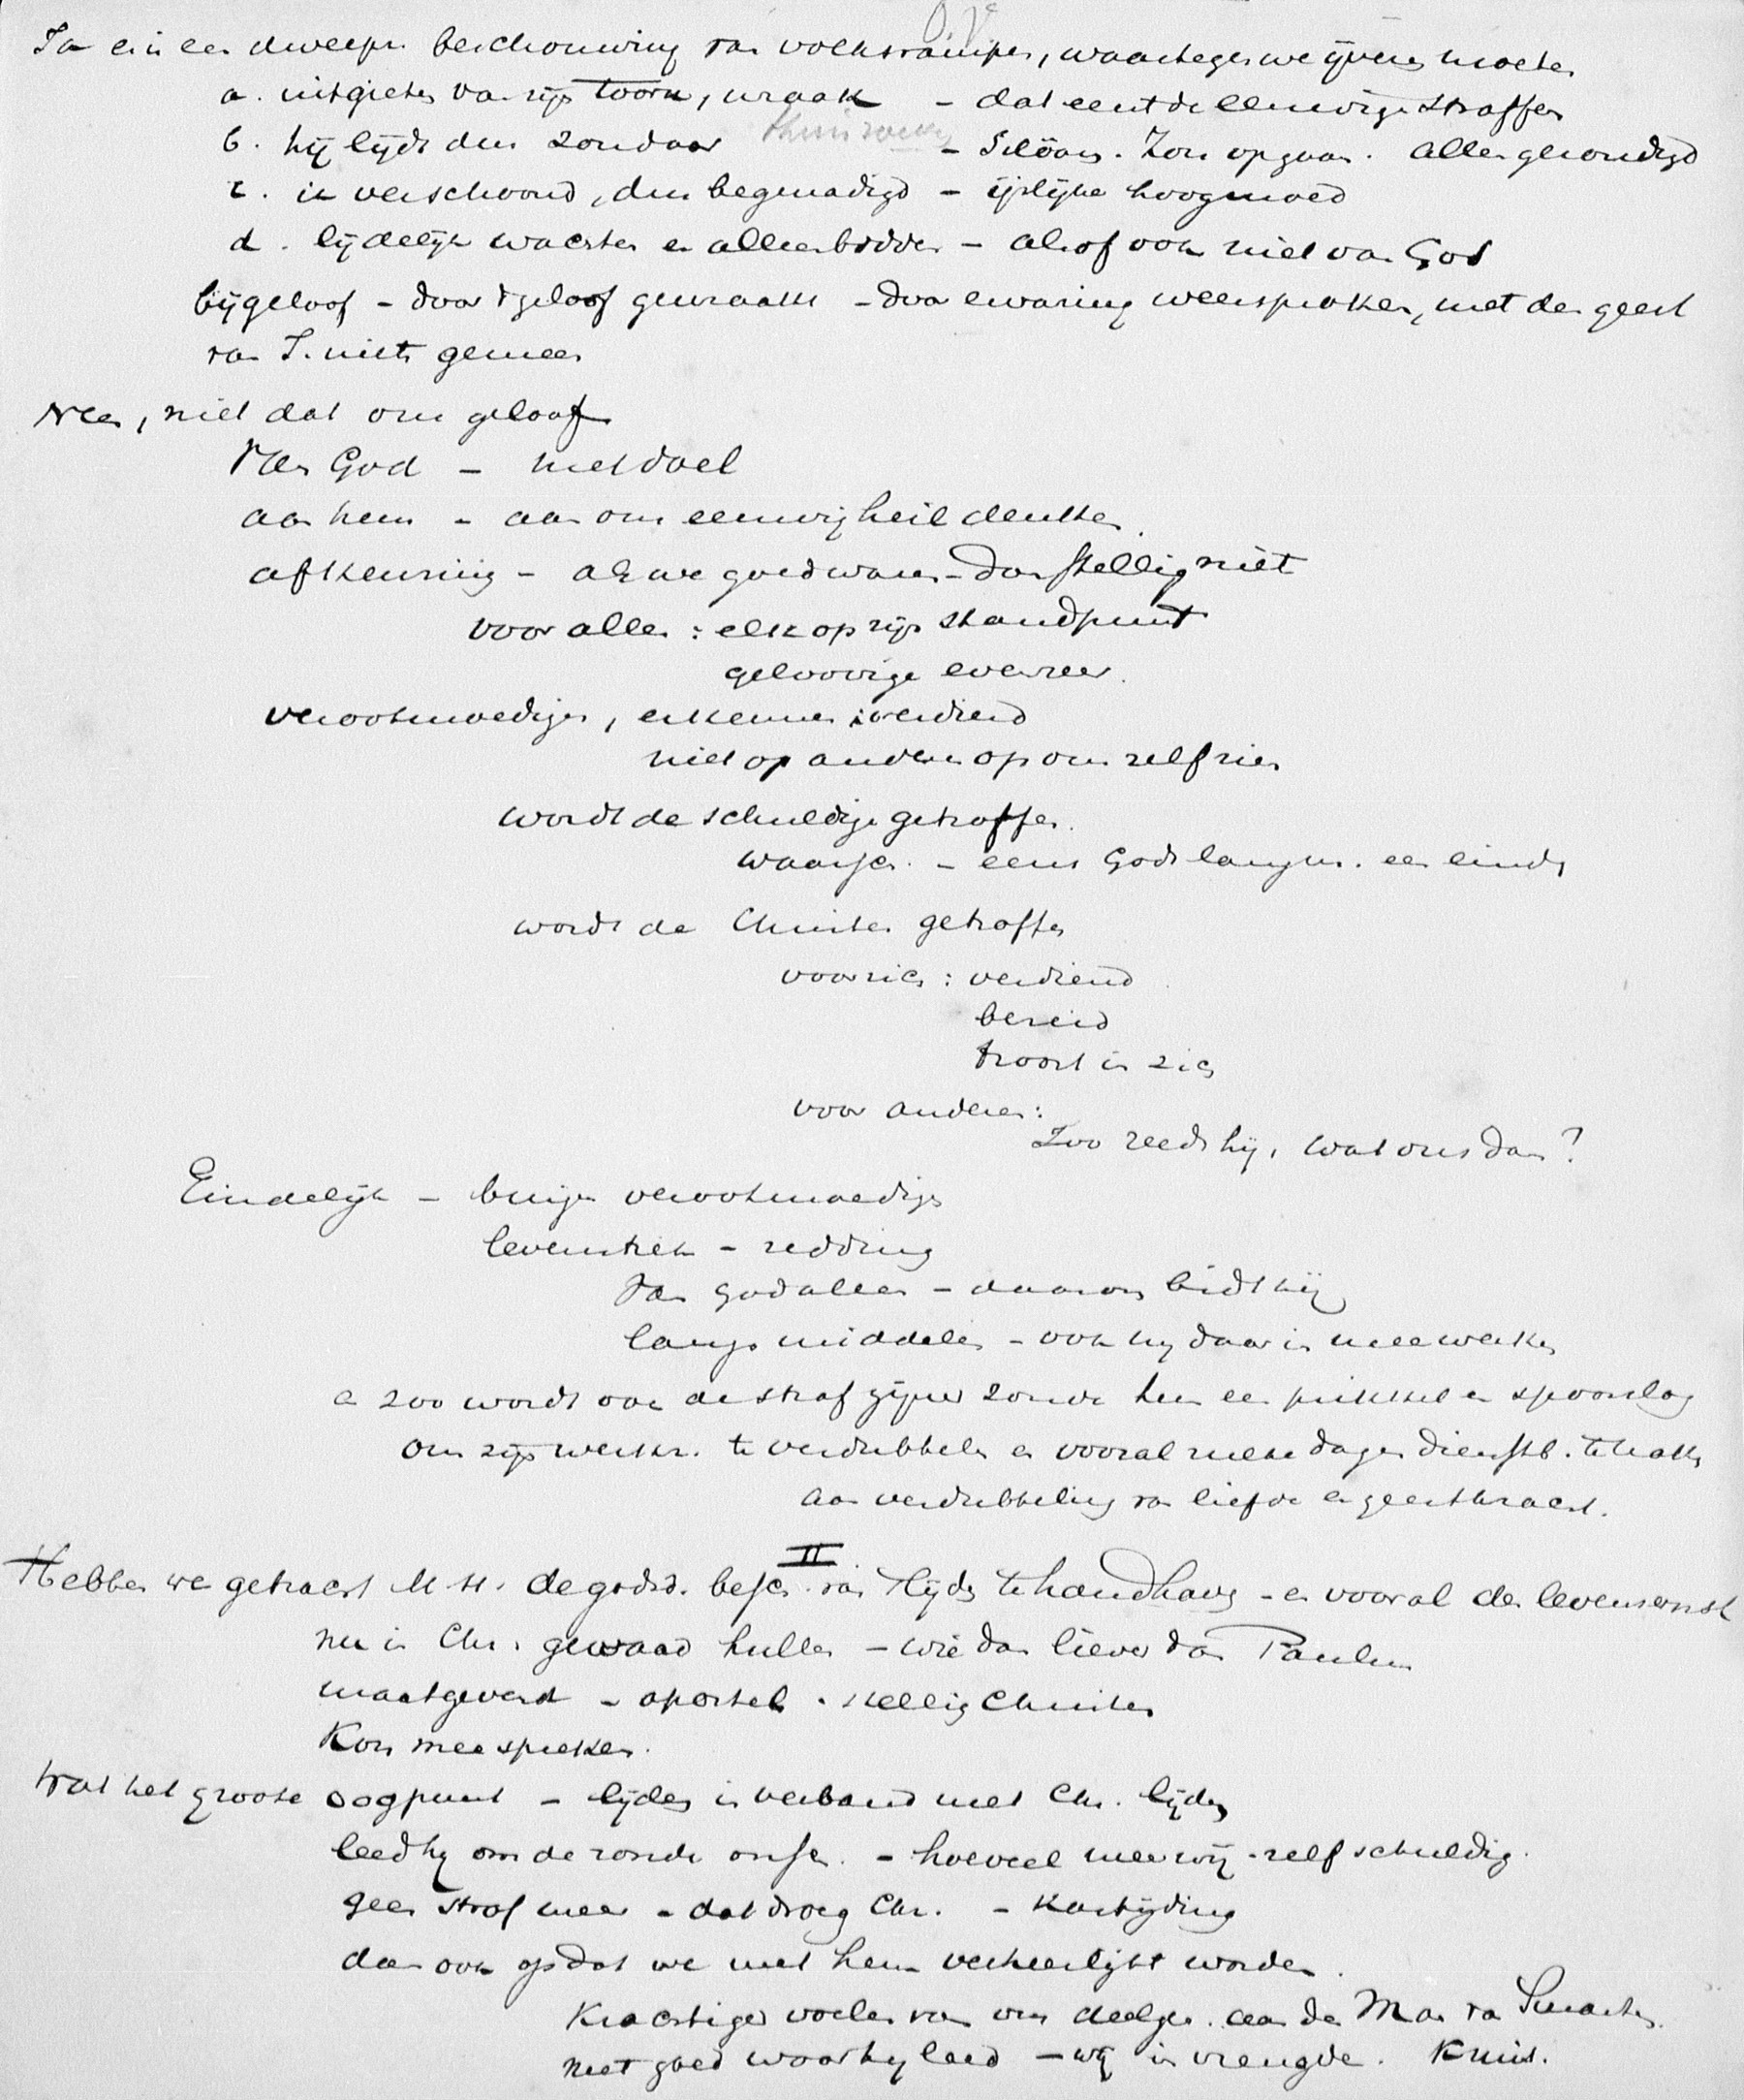 Ja er is een dweepz. beschouwing van volksrampen, waartegen we ijveren moeten
a. uitgieten van zijn toorn, wraak - dat eerst de eeuwige straffen
b. hij lijdt dus zondaar - Silöam. Zon opgaan. allen gezondigd
c. ik verschoond, dus begenadigd - ijslijke hoogmoed
d. lijdelijk wachten en alleen bidden - alsof ook niet van God
bijgeloof - door 't geloof gewraakt - door ervaring weersproken, met den geest
van J. niets gemeen
Neen, niet dat ons geloof
Van God - met doel
aan hem - aan ons eeuwig heil denken
afkeuring - als we goed waren - dan stellig niet
voor allen: elk op zijn standpunt
geloovige evenzeer.
verootmoedigen, erkennen verdiend
niet op anderen op ons zelf zien
wordt de schuldige getroffen.
waarsch. - eens Gods langm. een einde
wordt de Christen getroffen
voor zich: verdiend
bereid
troost in zich
voor anderen:
Zoo reeds hij, wat ons dan?
Eindelijk - buigen verootmoedigen
levenstrek - redding
Van God alles - daarom bidt hij
langs middelen - ook hij daarin meewerken
en zoo wordt ook de straf zijner zonde hem een prikkel en spoorslag
om zijn werkz. te verdubbelen en vooral zulke dagen dienstb. te maken
aan verdubbeling van liefde en geestkracht.
II
Hebben we getracht M.H. de godsd. besch. van 't lijden te handhaven - en vooral den levensernst
nu in Chr. gewaad hullen - wie dan liever dan Paulus
maatgevend - apostel. stellig Christen
Kon meespreken.
Wat het groote oogpunt - lijden in verband met Chr. lijden
leed hij om de zonde onsch. - hoeveel meer wij - zelf schuldig.
geen straf meer - dat droeg Chr. - Kastijding
dan ook opdat we met hem verheerlijkt worden.
Krachtiger voelen van ons deelgen. aan den Man van Smarten.
niet goed waar hij leed - wij in vreugde. Kruis.